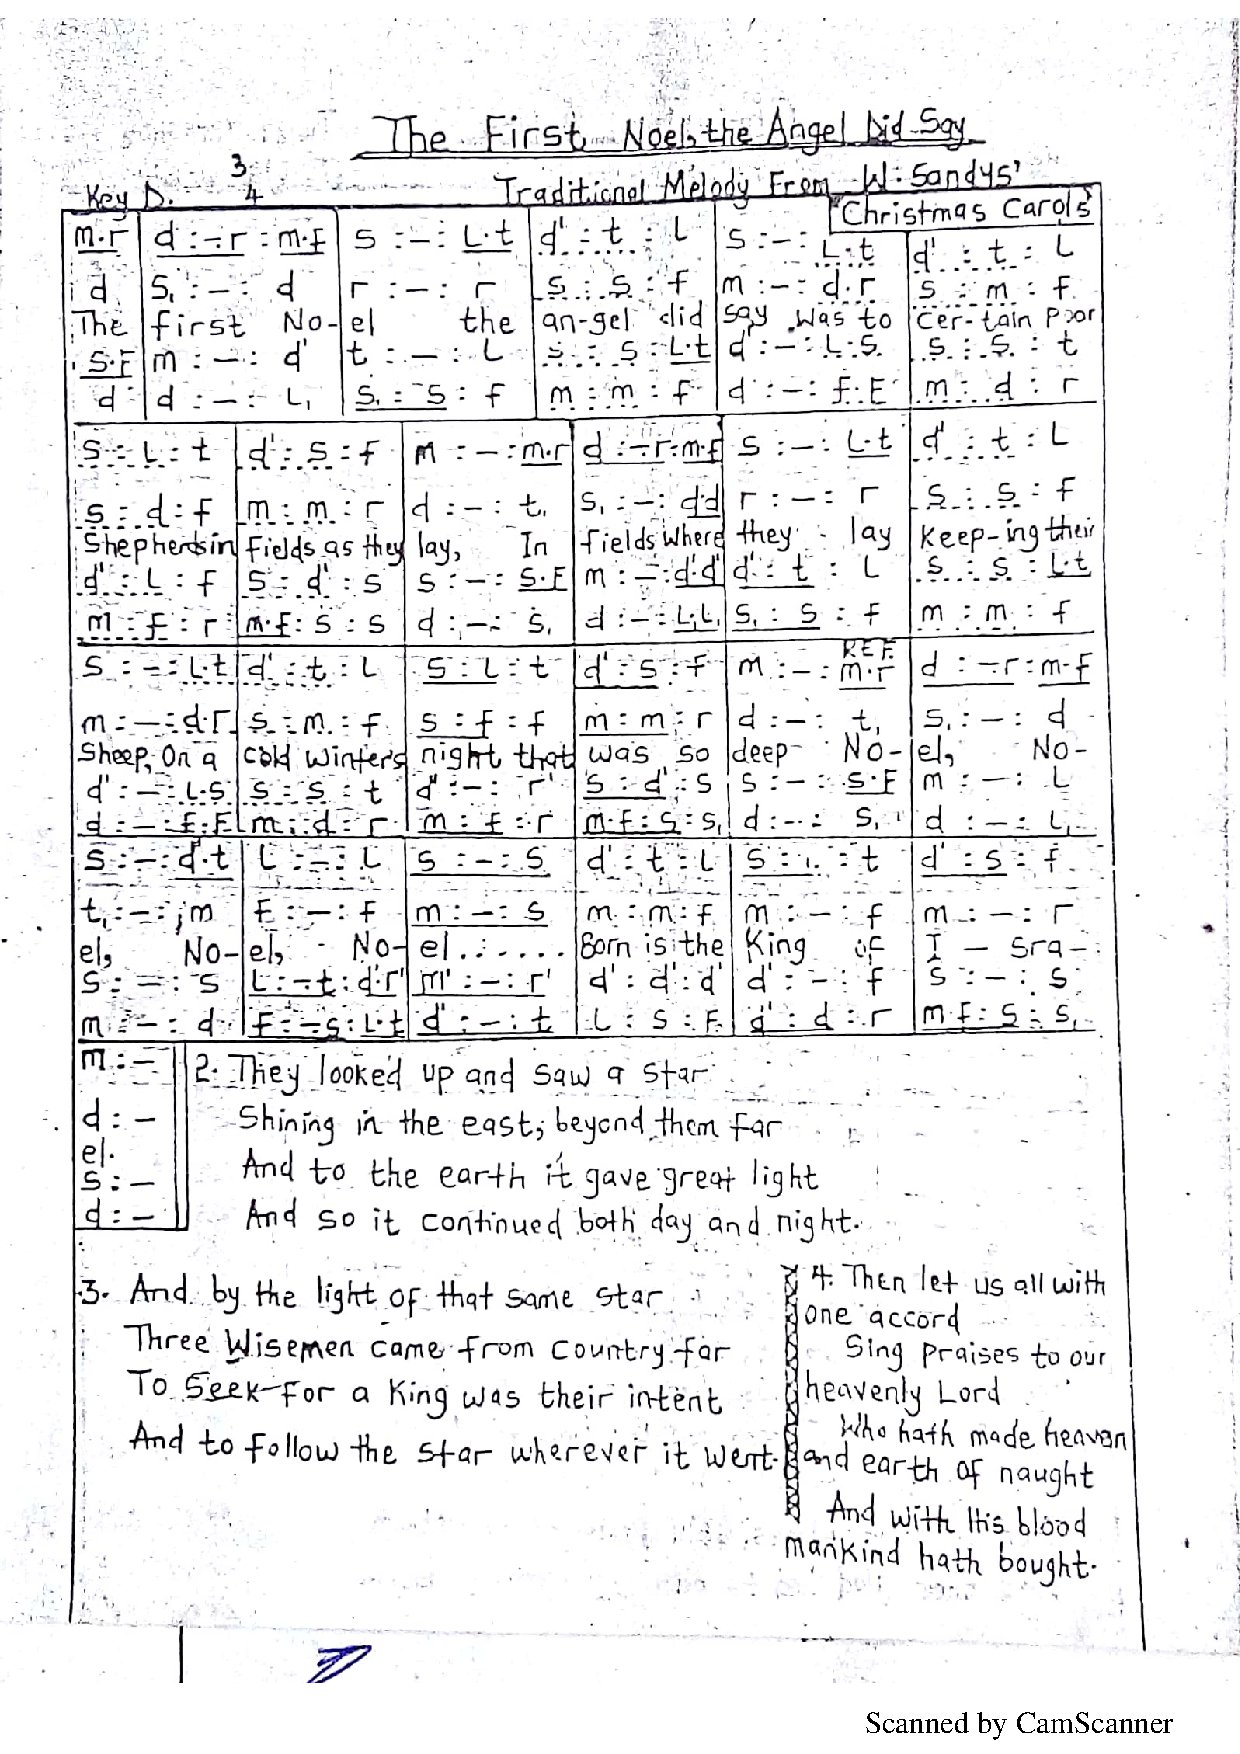 The First Noel, the Angel Did Say
Key D. 3/4 Traditional Melody From W. Sandys'
Christmas Carols
m.r | d :-.r : m.f | s :-: L.t | d' : t : L | s :-: L.t | d' : t : L
d | s, :-: d | r :-: r | s : s : f | m :-: d.r | s : m : f
The | first No- | el the | an-gel did | say was to | cer-tain poor
s.f | m :-: d' | t :-: L | s : s : L.t | d' :-: L.s | s : s : t
d | d :-: L, | s, : s : f | m : m : f | d :-: f.f | m : d : r
s : L : t | d' : s : f | m :-: m.r | d :-r: m.f | s :-: L.t | d' : t : L
s : d : f | m : m : r | d :-: t, | s, :-: dd | r :-: r | s : s : f
Shepherds in | fields as they | lay, In | fields where | they lay | keep-ing their
d' : L : f | s : d' : s | s :-: s.f | m :-: d'd' | d' : t : L | s : s : L.t
m : f : r | m.f : s : s | d :-: s, | d :-: L,L, | s, : s : f | m : m : f
REF.
s :-: L.t | d' : t : L | s : L : t | d' : s : f | m :-: m.r | d :-r : m.f
m :-: d.r | s : m : f | s : f : f | m : m : r | d :-: t, | s, :-: d
Sheep, On a | cold winters | night that | was so | deep- No- | el, No-
d' :-: L.s | s : s : t | d' :-: r' | s : d' : s | s :-: s.f | m :-: L
d :-: f.f | m : d : r | m : f : r | m.f : s : s, | d :-: s, | d :-: L,
s :-: d.t | L :-: L | s :-: s | d' : t : L | s : : t | d' : s : f
t, :-: m | f :-: f | m :-: s | m : m : f | m :-: f | m :-: r
el, No- | el, No- | el....... | Born is the | King of | I - sra-
s :-: s | L :-t : d.r' | m' :-: r' | d' : d' : d' | d' :-: f | s :-: s
m :-: d | f :-s : L.t | d' :-: t | L : s : f | d' : d : r | m f : s : s,
m :-
d :-
el.
s :-
d :-
2. They looked up and saw a star
Shining in the east, beyond them far
And to the earth it gave great light
And so it continued both day and night.
3. And by the light of that same star
Three Wisemen came from country far
To Seek for a King was their intent
And to follow the star wherever it went.
4. Then let us all with
one accord
Sing praises to our
heavenly Lord
Who hath made heaven
and earth of naught
And with His blood
mankind hath bought.
Scanned by CamScanner